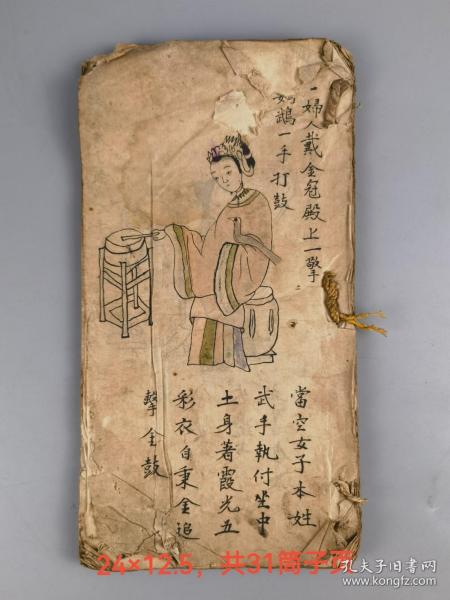 一婦人戴金冠殿上一擎
鵡一手打鼓
當空女子本姓
武手執付坐中
土身著霞光五
彩衣自秉金追
擊金鼓
24×12.5，共31筒子页
孔夫子旧书网
www.kongfz.com